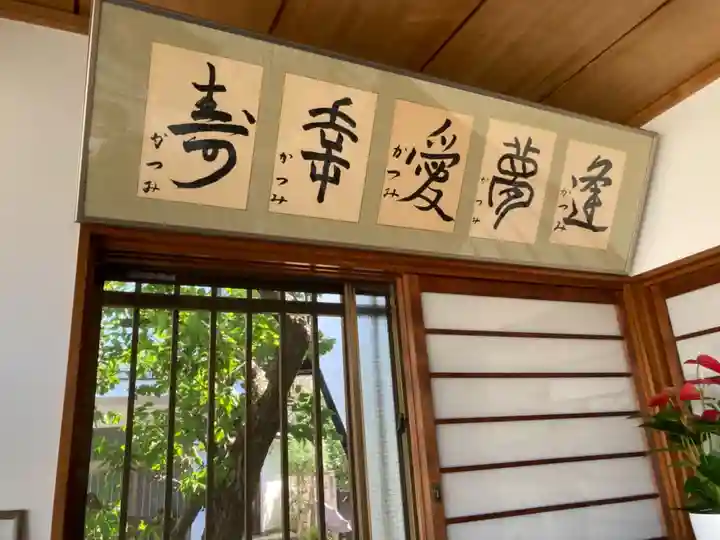 逢
かつみ
夢
かつみ
愛
かつみ
幸
かつみ
寿
かつみ